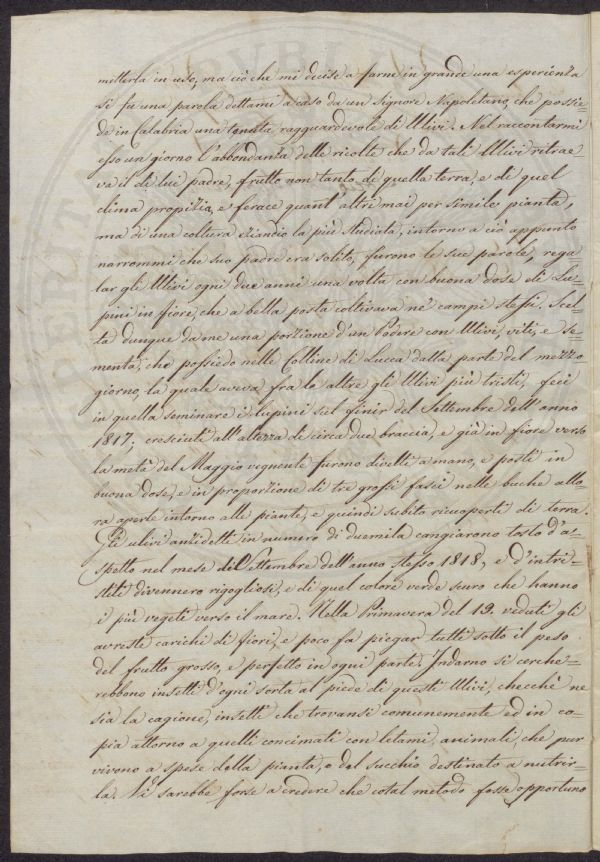 metterla in uso, ma ciò che mi decise a farne in grande una esperienza
si fu una parola dettami a caso da un Signore Napoletano, che possie-
de in Calabria una tenuta ragguardevole di Ulivi. Nel raccontarmi
esso un giorno l'abbondanza delle ricolte che da tali Ulivi ritrae-
va il di lui padre, frutto non tanto di quella terra, e di quel
clima propizia, e ferace quant'altri mai per simile pianta,
ma di una coltura eziandio la più studiata, intorno a ciò appunto
narrommi che suo padre era solito, furono le sue parole, rega-
lar gli Ulivi ogni due anni una volta con buona dose di Lu-
pini in fiore, che a bella posta coltivava ne' campi stessi. Scel-
ta dunque da me una porzione d'un Podere con Ulivi, viti, e se-
menta, che possiedo nelle Colline di Lucca dalla parte del mezzo
giorno, la quale aveva fra le altre gli Ulivi più tristi, feci
in quella seminare i lupini sul finir del Settembre dell'anno
1817; cresciuti all'altezza di circa due braccia, e già in fiore verso
la metà del Maggio vegnente furono divelti a mano, e posti in
buona dose, e in proporzione di tre grossi fasci nelle buche allo-
ra aperte intorno alle piante, e quindi subito ricuoperti di terra.
Gli ulivi anzidetti in numero di duemila cangiarono tosto d'a-
spetto nel mese di Settembre dell'anno stesso 1818, e d'intri-
stiti divennero rigogliosi, e di quel colore verde scuro che hanno
i più vegeti verso il mare. Nella Primavera del 19. veduti gli
avreste carichi di fiori, e poco fa piegar tutti sotto il peso
del frutto grosso, e perfetto in ogni parte. Indarno si cerche-
rebbono insetti d'ogni sorta al piede di questi Ulivi, checchè ne
sia la cagione, insetti che trovansi comunemente ed in co-
pia attorno a quelli concimati con letami, animali, che pur
vivono a spese della pianta, o del succhio destinato a nutrir-
la. Vi sarebbe forse a credere che cotal metodo fosse opportuno